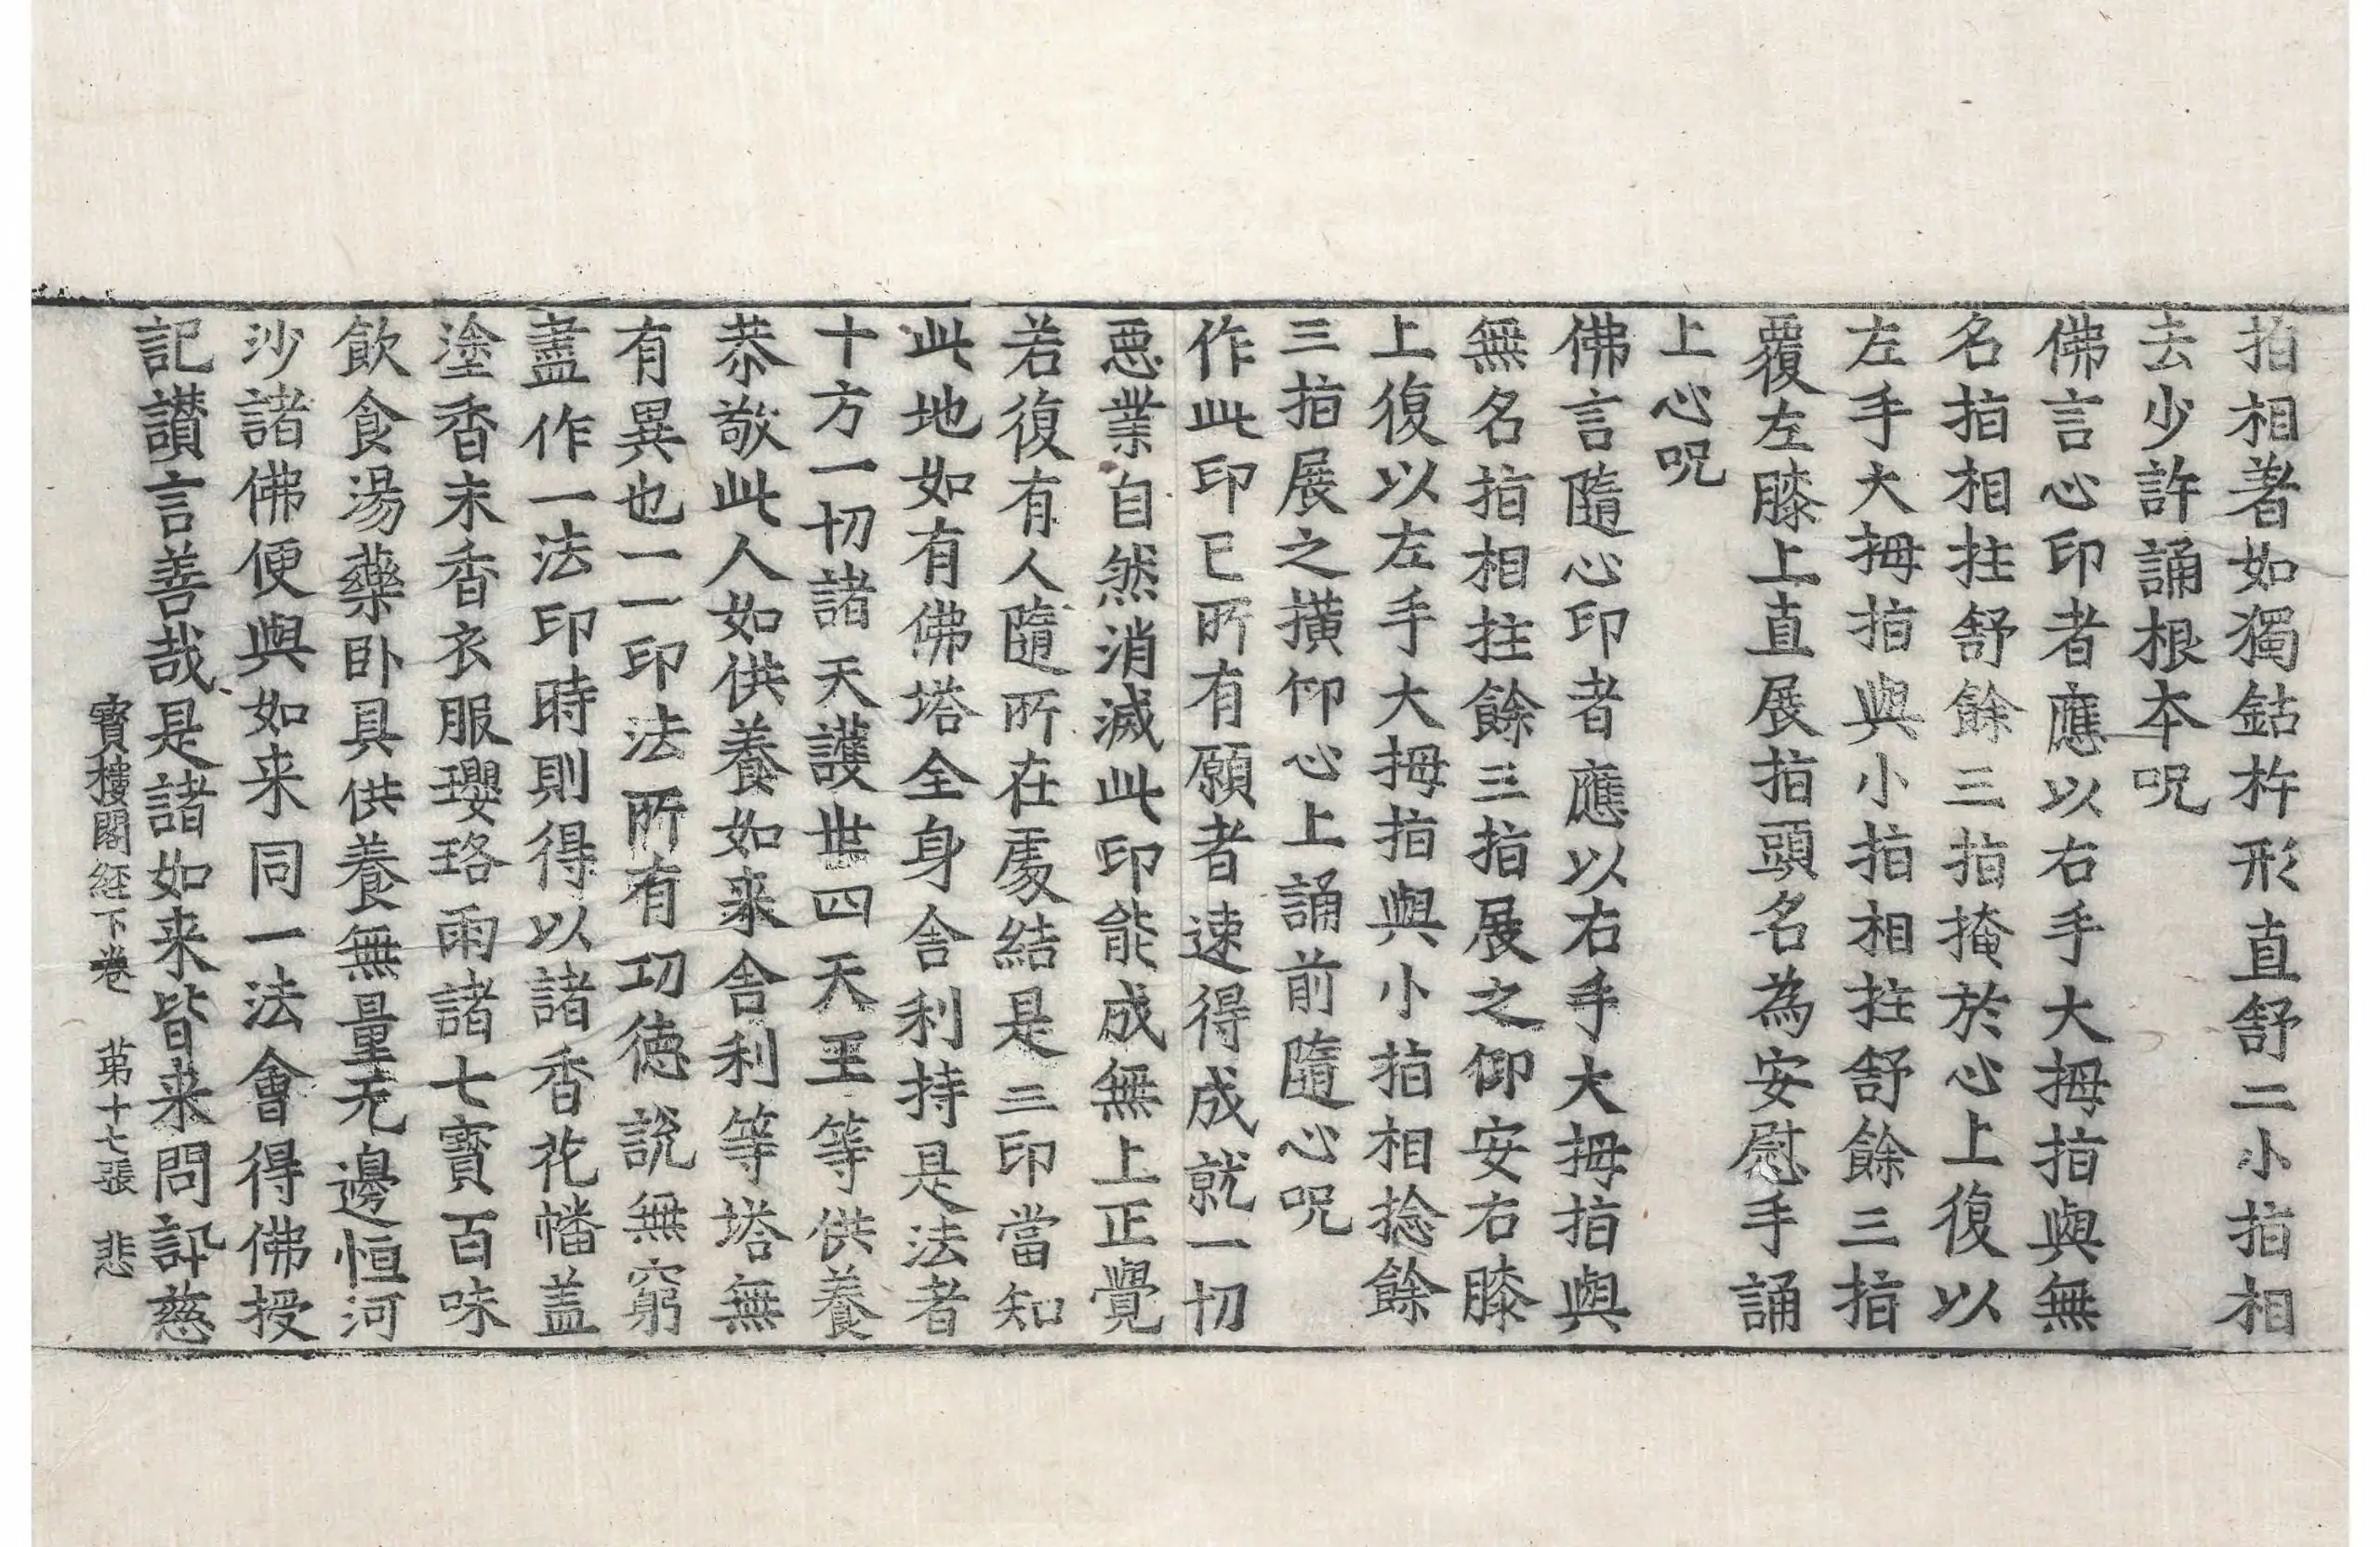 指相著如獨鈷杵形直舒二小指相
去少許誦根本呪
佛言心印者應以右手大拇指與無
名指相拄舒餘三指掩於心上復以
左手大拇指與小指相拄舒餘三指
覆左膝上直展指頭名為安慰手誦
上心呪
佛言隨心印者應以右手大拇指與
無名指相拄餘三指展之仰安右膝
上復以左手大拇指與小指相捻餘
三指展之横仰心上誦前隨心呪
作此印已所有願者速得成就一切
惡業自然消滅此印能成無上正覺
若復有人隨所在處結是三印當知
此地如有佛塔全身舍利持是法者
十方一切諸天護世四天王等供養
恭敬此人如供養如来舍利等塔無
有異也一一印法所有功德說無窮
盡作一法印時則得以諸香花幡蓋
塗香末香衣服瓔珞雨諸七寳百味
飲食湯藥卧具供養無量无邊恒河
沙諸佛便與如来同一法會得佛授
記讃言善哉是諸如来皆来問訊慈
寳樓閣經下卷 苐十七張 悲